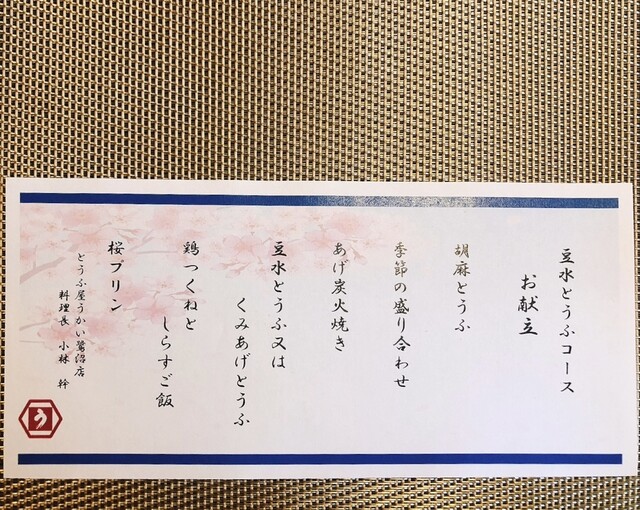 豆水とうふコース
お献立
胡麻とうふ
季節の盛り合わせ
あげ炭火焼き
豆水とうふ又は
くみあげとうふ
鶏つくねと
しらすご飯
桜プリン
とうふ屋うかい鷺沼店
料理長 小林 幹
う